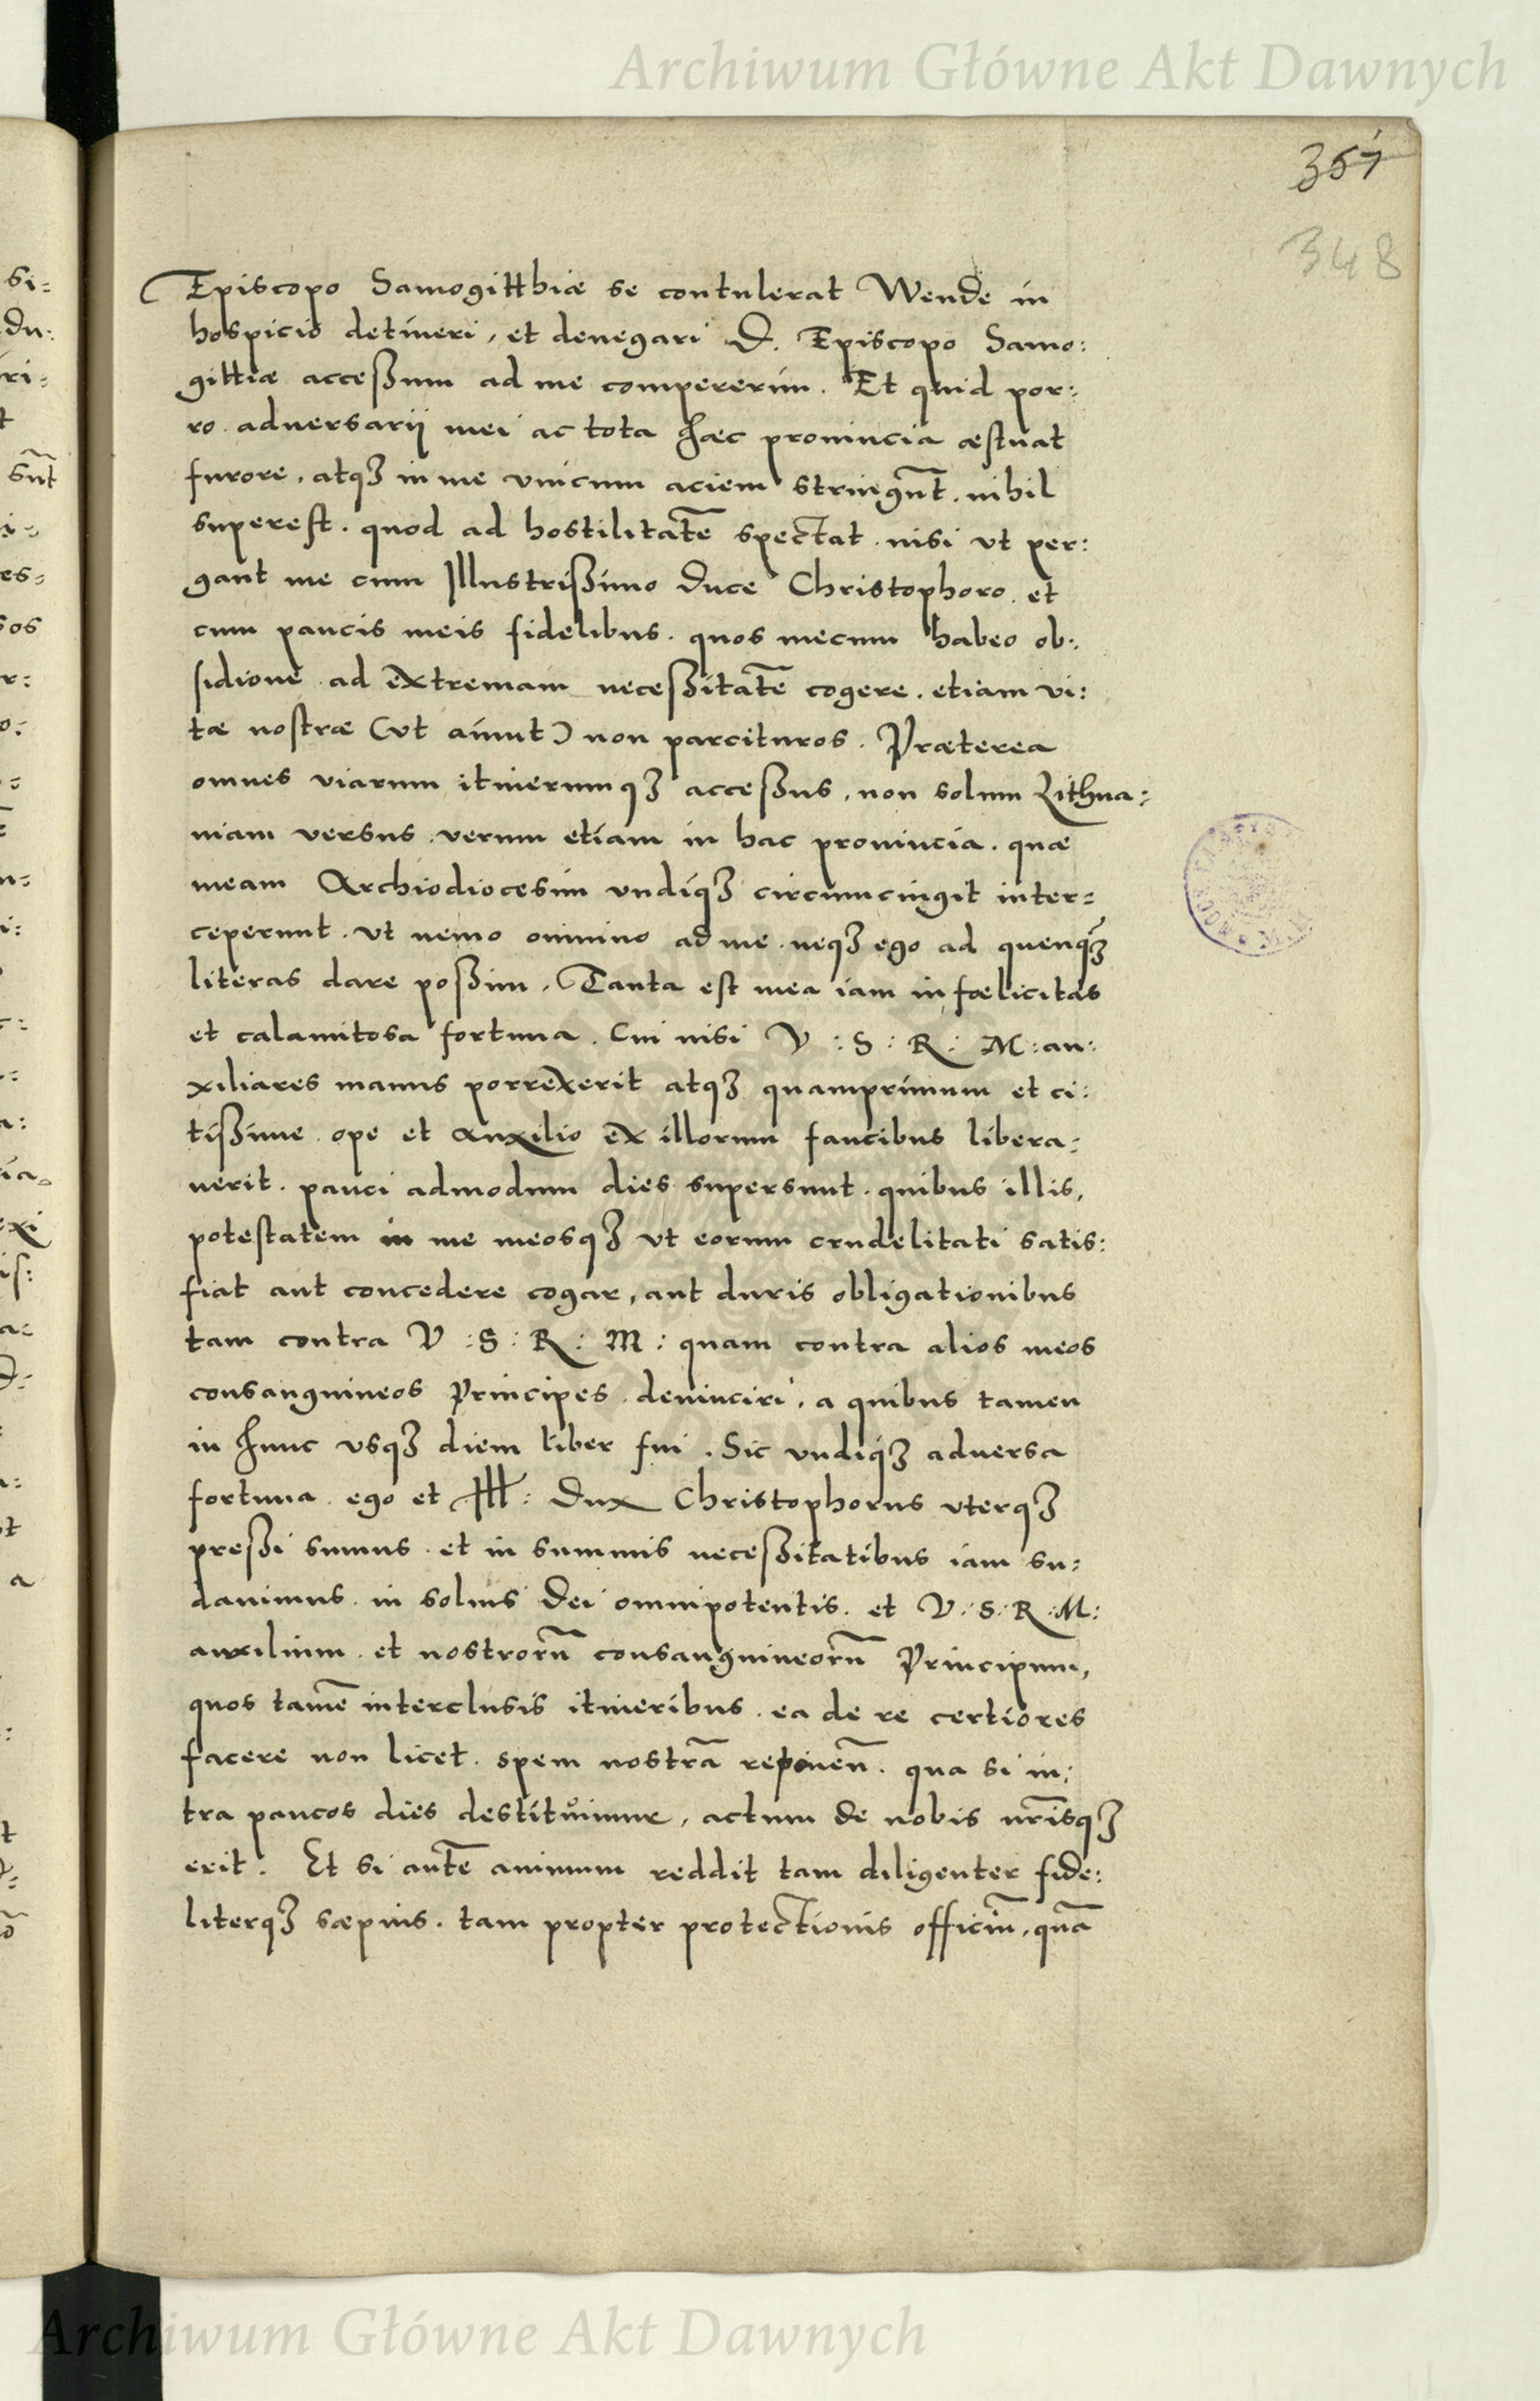 Archiwum Główne Akt Dawnych
351
348
Episcopo Samogitthiæ se contulerat Wende in
hospicio detineri, et denegari D. Episcopo Samo:
gittiæ acceßum ad me compererim. Et quid por:
ro. aduersarij mei ac tota hæc prouincia æstuat
furore, atqȝ in me vnicum aciem stringũt. nihil
superest. quod ad hostilitatẽ spectat. nisi vt per:
gant me cum Illustrißimo Duce Christophoro. et
cum paucis meis fidelibus. quos mecum habeo ob:
sidione. ad extremam neceßitatẽ cogere. etiam vi:
tæ nostræ (vt aiunt) non parcituros. Præterea
omnes viarum itinerumqȝ acceßus, non solum Lithua:
niam versus. verum etiam in hac prouincia. quæ
meam Archiodiocesim vndiqȝ circumcingit inter=
ceperunt. vt nemo omnino ad me. neqȝ ego ad quenqȝ̃
literas dare poßim. Tanta est mea iam infœlicitas
et calamitosa fortuna. Cui nisi V : S : R : M : au:
xiliares manus porrexerit atqȝ quamprimum et ci:
tißime. ope et auxilio ex illorum faucibus libera:
uerit. pauci admodum dies supersunt. quibus illis,
potestatem in me meosqȝ vt eorum crudelitati satis:
fiat aut concedere cogar, aut duris obligationibus
tam contra V : S : R : M : quam contra alios meos
consanguineos Principes. deuinciri, a quibus tamen
in hunc vsqȝ diem liber fui. Sic vndiqȝ aduersa
fortuna. ego et Ill: Dux Christophorus vterqȝ
preßi sumus. et in summis neceßitatibus iam su:
dauimus. in solius Dei omnipotentis. et V : S : R : M :
auxilium. et nostrorũ consanguineorũ Principum,
quos tamẽ interclusis itineribus. ea de re certiores
facere non licet. spem nostrã reponẽ. qua si in:
tra paucos dies destituimur, actum de nobis nr̃isqȝ
erit. Et si autẽ animum reddit tam diligenter fide:
literqȝ sæpius. tam propter protectionis officiũ, quã
Archiwum Główne Akt Dawnych